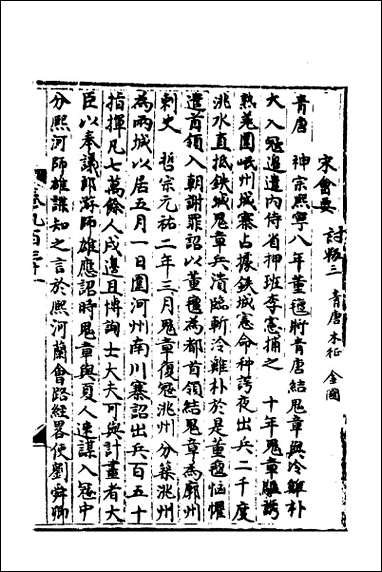 宋會要 討叛三 青唐 木征 金國
青唐 神宗熙寧八年董氊將青唐結鬼章與冷雞朴
大入冦邊遣內侍省押班李憲捕之 十年鬼章驅誘
熟羗圍岷州城寨占據鐵城憲命种諤夜出兵二千度
洮水直抵鐵城鬼章兵潰臨斬冷雞朴於是董氊恐懼
遣首領入朝謝罪詔以董氊為都首領結鬼章為廓州
刺史 哲宗元祐二年三月鬼章復冦洮州分築洮州
為兩城以居五月一日圍河州南川寨詔出兵百五十
指揮凡七萬餘人戍邊且博詢士大夫可與計畫者大
臣以奉議郎游師雄應詔時鬼章與夏人連謀入冦中
分熙河師雄諜知之言於熙河蘭會路經畧使劉舜卿